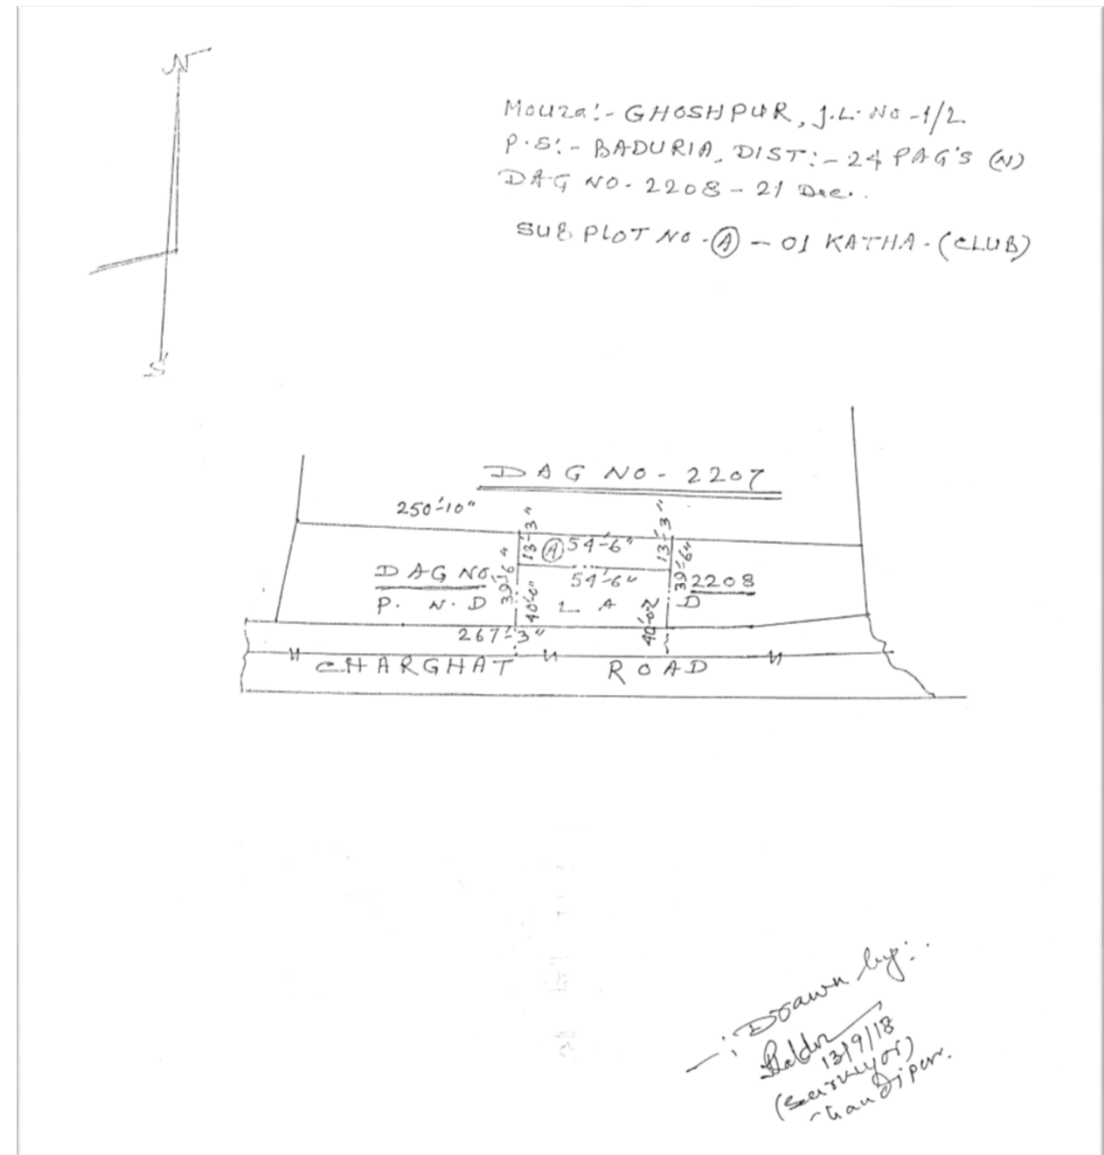 N
Mouza:- GHOSHPUR, J.L. No -1/2.
P.S:- BADURIA, DIST:- 24 PAG'S (N)
DAG NO- 2208 - 21 Dec..
SUB PLOT NO-(A) - 01 KATHA-(CLUB)
S
DAG NO- 2207
250'-10"
13'-3"
13'-3"
(A) 54'-6"
39'-6"
39'-6"
DAG NO.
54'-6"
2208
P. W.D
40'-0"
L A
D
267'-3"
CHARGHAT ROAD
-: Drawn by:.
13/9/18
(Surveyor)